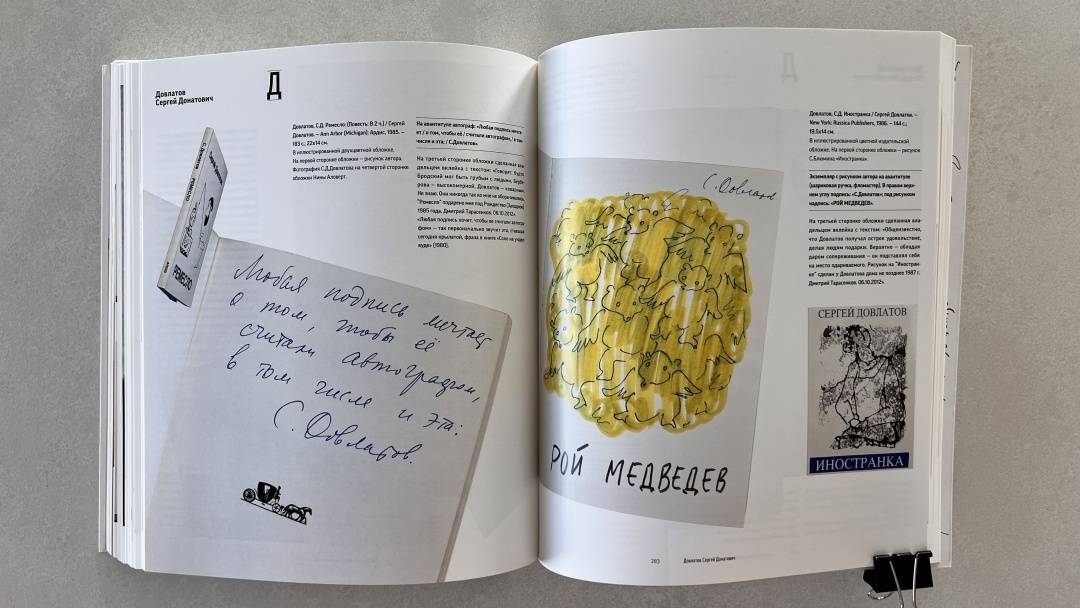 Довлатов
Сергей Донатович
Д
Довлатов, С.Д. Ремесло (Повесть: В 2 ч.) / Сергей
Довлатов. – Ann Arbor (Michigan): Ардис, 1985. –
183 с.; 22х14 см.
В иллюстрированной двухцветной обложке.
На первой стороне обложки – рисунок автора.
Фотография С.Д.Довлатова на четвертой стороне
обложки Нины Аловерт.
На авантитуле автограф: «Любая подпись мечта-
ет / о том, чтобы её / считали автографом, / в том
числе и эта: / С.Довлатов».
На третьей стороне обложки сделанная вла-
дельцем вклейка с текстом: «Говорят, будто
Бродский мог быть грубым с людьми, Бербе-
рова – высокомерной, Довлатов – коварным.
Не знаю. Они никогда так со мной не обходились.
"Ремесло" подарено мне под Рождество
1985 года. Дмитрий Тарасенков. 06.10.2012».
«Любая подпись хочет, чтобы ее считали автогра-
фом» – так первоначально звучит эта, ставшая
сегодня крылатой, фраза в книге «Соло на ундер-
вуде» (1980).
РЕМЕСЛО
Любая подпись мечтает
о том, чтобы её
считали автографом,
в том числе и эта:
С. Довлатов.
С. Довлатов
РОЙ МЕДВЕДЕВ
Довлатов, С.Д. Иностранка / Сергей Довлатов. –
New York: Russica Publishers, 1986. – 144 с.;
19,5х14 см.
В иллюстрированной цветной издательской
обложке. На первой стороне обложки – рисунок
«Иностранка».
Экземпляр с рисунком автора на авантитуле
(шариковая ручка, фломастер). В правом верх-
нем углу подпись: «С.Довлатов»; под рисунком
надпись: «РОЙ МЕДВЕДЕВ».
На третьей стороне обложки сделанная вла-
дельцем вклейка с текстом: «Общеизвестно,
что Довлатов получал острое удовольствие,
делая людям подарки. Вероятно – обладая
даром сопереживания – он подставлял себя
на место одариваемого. Рисунок на "Иностран-
ке" сделан у Довлатова дома не позднее 1987 г.
Дмитрий Тарасенков. 06.10.2012».
СЕРГЕЙ ДОВЛАТОВ
ИНОСТРАНКА
203
Довлатов Сергей Донатович